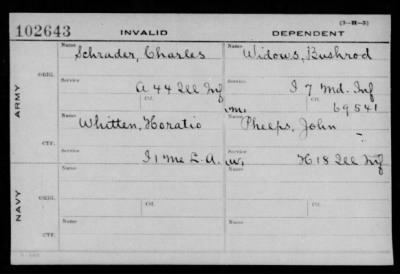 (3—H—3)
102643 INVALID DEPENDENT
Name Name
Schrader, Charles Widows, Bushrod
ORIG.
Service Service
A 44 Ill Inf I 7 Md. Inf
Ctf. Ctf.
69541
ARMY
Name Name
Whitten, Horatio Phelps, John
CTF.
Service Service
I 1 Me L.A. H 18 Ill Inf
Name Name
ORIG.
Service Ctf. Service Ctf.
NAVY
Name Name
CTF.